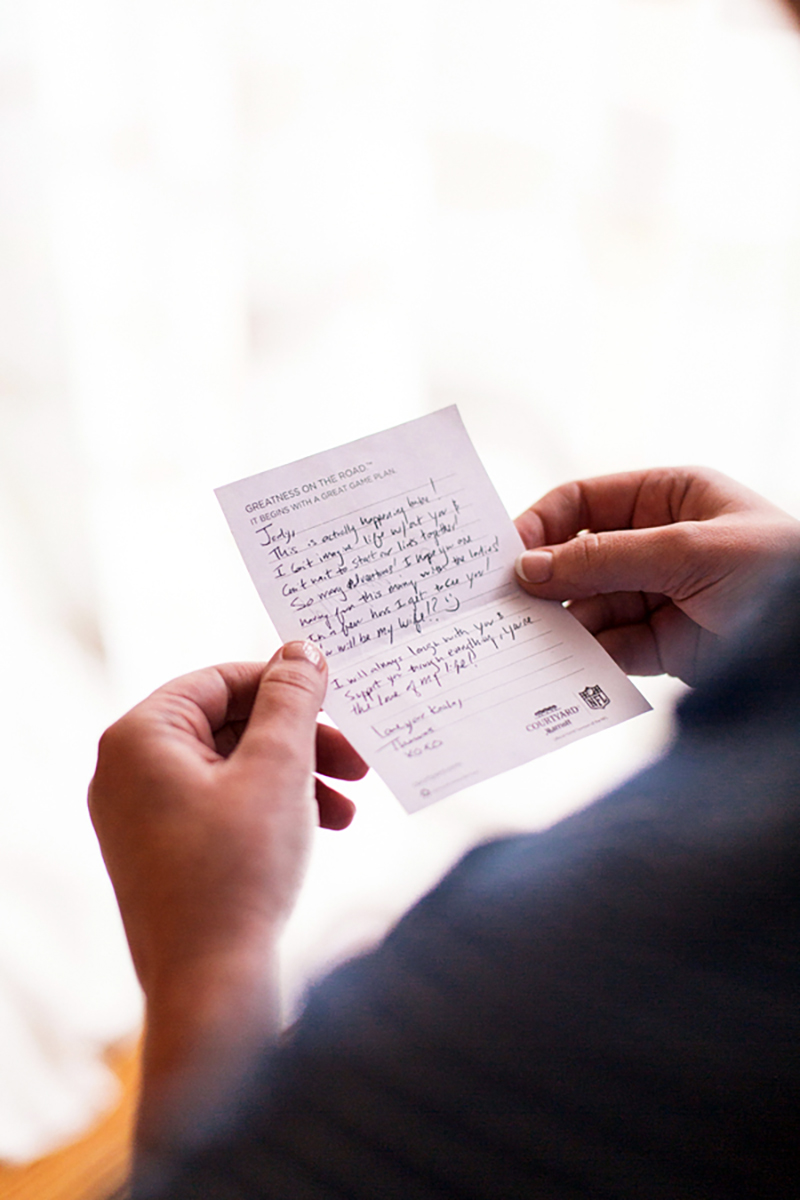 GREATNESS ON THE ROAD.™
IT BEGINS WITH A GREAT GAME PLAN.
Jordy,
This is actually happening babe!
I can't imagine life w/out you &
Can't wait to start our lives together!
So many adventures! I hope you are
having fun this morning w/ the ladies!
In a few hours I get to see you!
will be my wife!? :)
I will always laugh with you &
Support you through everything, you're
the love of my life!!
Love your
XOXO
COURTYARD
Marriott
NFL